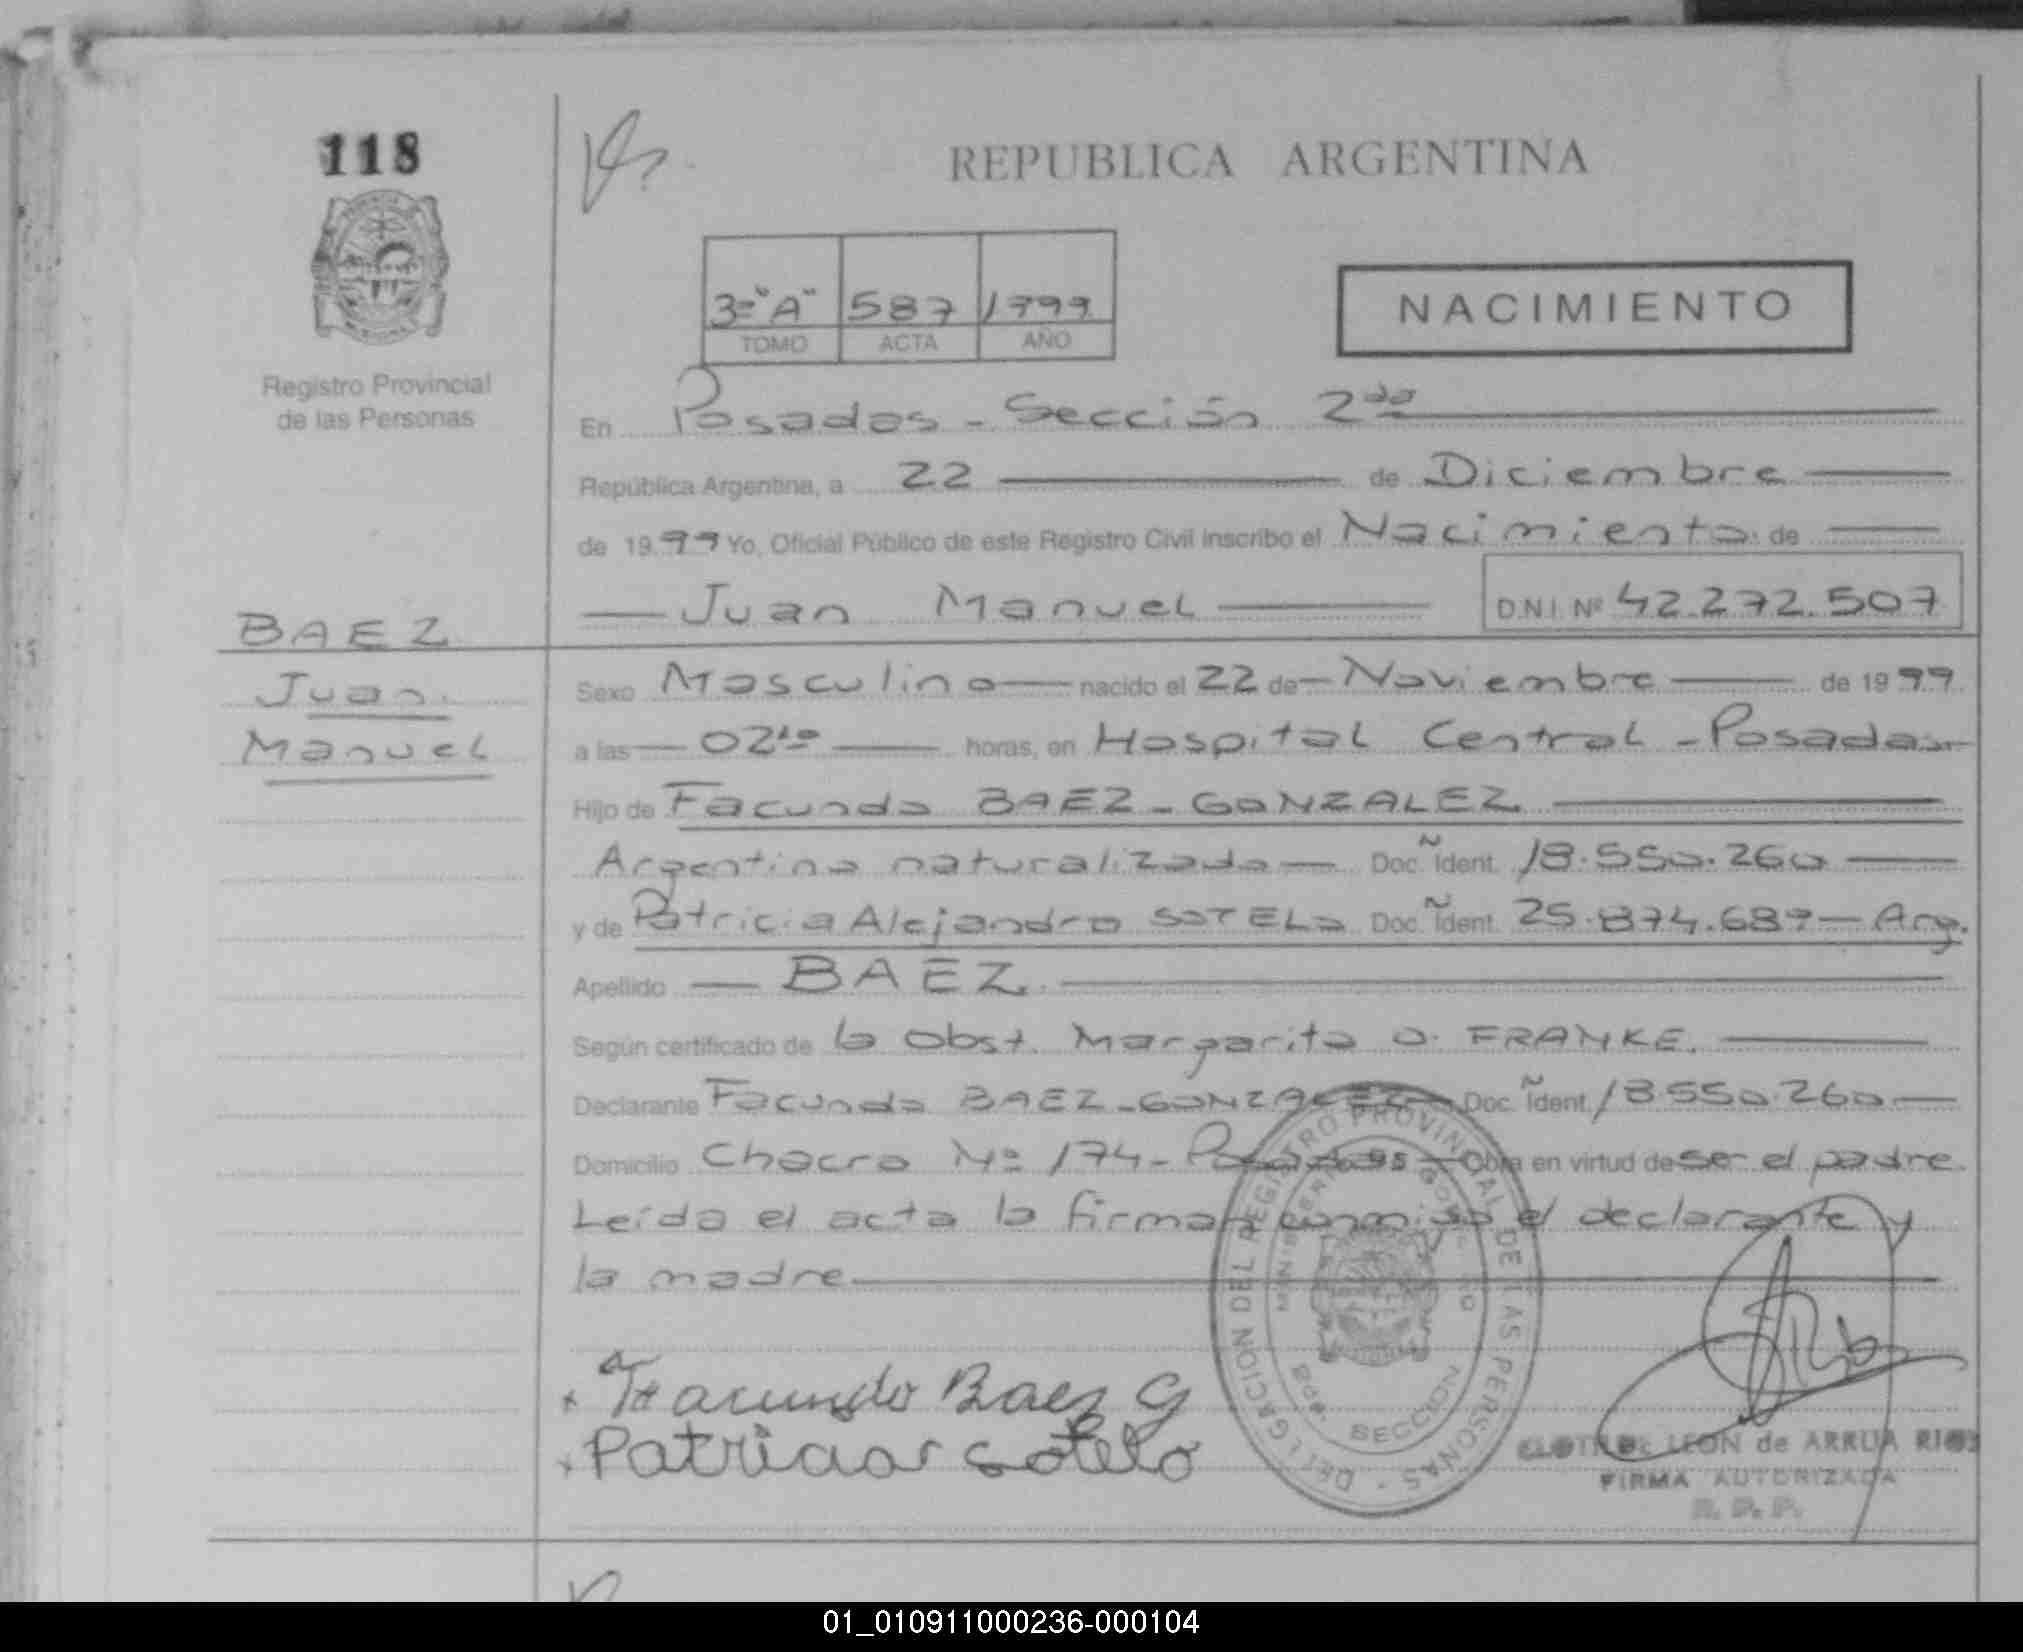 118
REPUBLICA ARGENTINA
3º "A" 587 1999
TOMO ACTA AÑO
NACIMIENTO
Registro Provincial
de las Personas
En Posadas - Sección 2da
República Argentina, a 22 de Diciembre
de 1999 Yo, Oficial Público de este Registro Civil inscribo el Nacimiento de
Juan Manuel D.N.I. Nº 42.272.507
BAEZ
Juan
Manuel
Sexo Masculino nacido el 22 de Noviembre de 1999
a las 02 10 horas, en Hospital Central - Posadas
Hijo de Facundo BAEZ - GONZALEZ
Argentino naturalizado Doc. Ñ Ident. 18.550.260
y de Patricia Alejandra SOTELO Doc. Ñ Ident. 25.874.689 - Arg.
Apellido BAEZ
Según certificado de la Obst. Margarita O. FRANKE.
Declarante Facundo BAEZ - GONZALEZ Doc. Ñ Ident. 18.550.260
Domicilio Chacra Nº 174 - Posadas Obra en virtud de ser el padre
Leída el acta la firman conmigo el declarante y
la madre
Facundo Baez G
Patricia Sotelo
DELEGACION DEL REGISTRO PROVINCIAL DE LAS PERSONAS
2da. SECCION
CLOTILDE LEON de ARRUA RIOS
FIRMA AUTORIZADA
R. P. P.
01_010911000236-000104